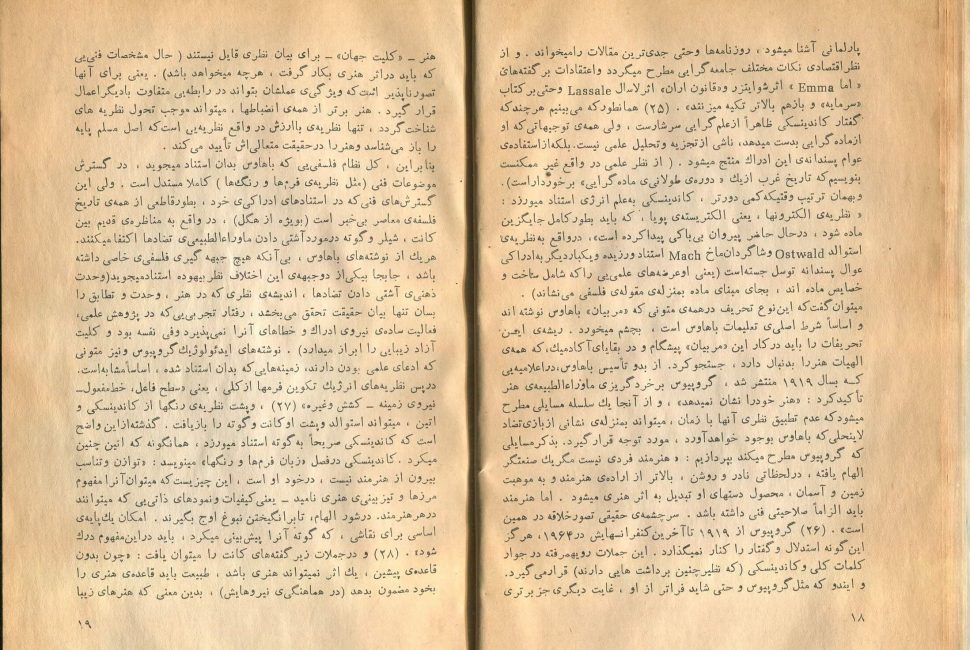 پارلمانی آشنا میشود ، روزنامه‌ها وحتی جدی‌ترین مقالات رامیخواند . و از
نظراقتصادی نکات مختلف جامعه‌گرایی مطرح میگردد واعتقادات برگفته‌های
« اما Emma » اثرشوایتزر و«قانون اران» اثرلاسال Lassale وحتی‌برکتاب
«سرمایه» و بازهم بالاتر تکیه میزنند» . (۲۵) همانطورکه می‌بینیم هرچندکه
گفتار کاندینسکی ظاهراً ازعلم‌گرایی سرشارست ، ولی همه‌ی توجیهاتی‌که او
ازماده‌گرایی بدست میدهد، ناشی ازتجزیه وتحلیل علمی نیست.بلکه‌ازاستفاده‌ی
عوام پسندانه‌ی این ادراک منتج میشود . ( از نظر علمی در واقع غیر ممکنست
بنویسیم‌که تاریخ غرب ازیک « دوره‌ی طولانی‌ی ماده‌گرایی» برخورداراست).
وبهمان ترتیب وقتیکه‌کمی دورتر ، کاندینسکی به‌علم انرژی استناد میورزد :
« نظریه‌ی الکترونها ، یعنی الکتریسته‌ی پویا ، که باید بطورکامل جایگزین
ماده شود ، درحال حاضر پیروان بی‌باکی پیداکرده است»، درواقع به‌نظریه‌ی
استوالد Ostwald وشاگردان‌ماخ Mach استناد ورزیده ویکباردیگربه‌ادراکی
عوال پسندانه توسل جسته‌است (یعنی اوعرضه‌های علمی‌یی را که شامل ساخت و
خصایص ماده اند ، بجای مبنای ماده بمنزله‌ی مقوله‌ی فلسفی می‌نشاند) .
میتوان گفت‌که این‌نوع تحریف درهمه‌ی متونی که «مربیان» باهاوس نوشته اند
و اساساً شرط اصلی‌ی تعلیمات باهاوس است ، بچشم میخورد . ریشه‌ی ایـن
تحریفات را باید درکار این «مربیان» پیشگام و در بقایای‌آکادمیک، که همه‌ی
الهیات هنررا بدنبال دارد ، جستجوکرد. از بدو تأسیس باهاوس،دراعلامیه‌یی
کـه بسال ۱۹۱۹ منتشر شد ، گروپیوس برخردگریزی ماوراءالطبیعه‌ی هنر
تأکیدکرد : «هنر خودرا نشان نمیدهد» ، و از آنجا یک سلسله مسایلی مطرح
میشودکه عدم تطبیق نظری آنها با زمان ، میتواند بمنزله‌ی نشانی ازبازی‌تضاد
لاینحلی‌که باهاوس بوجود خواهدآورد ، مورد توجه قرارگیرد. بذکرمسایلی
که گروپیوس مطرح میکند بپردازیم : « هنرمند فردی نیست مگریک صنعتگر
الهام یافته ، درلحظاتی نادر و روشن ، بالاتر از اراده‌ی هنرمند و به موهبت
زمین و آسمان ، محصول دستهای او تبدیل به اثر هنری میشود . اما هنرمند
باید الزاماً صلاحیتی فنی داشته باشد . سرچشمه‌ی حقیقی تصورخلاقه در همین
است» . (۲۶) گروپیوس از ۱۹۱۹ تاآخرین‌کنفرانسهایش در۱۹۶۴، هرگز
این‌گونه استدلال وگفتار را کنار نمیگذارد . این جملات رویهمرفته در جوار
کلمات کلی وکاندینسکی (که نظیرچنین برداشت هایی دارند) قرارمی‌گیرد.
و ایندو که مثل‌گروپیوس و حتی شاید فراتر از او ، غایت دیگری جز برتری
۱۸
هنر ــ «کلیت جهان» ــ برای بیان نظری قایل نیستند ( حال مشخصات فنی‌یی
که باید دراثر هنری بکار گرفت ، هرچه میخواهد باشد) . یعنی برای آنها
تصورناپذیر است که ویژگی‌ی عملشان بتواند در رابطه‌یی متفاوت بادیگراعمال
قرار گیرد . هنر برتر از همه‌ی انضباطها ، میتواند موجب تحول نظریه های
شناخت‌گردد ، تنها نظریه‌ی باارزش در واقع نظریه‌یی است‌که اصل مسلم پایه
را باز می‌شناسد وهنررا درحقیقت متعالی‌اش تأیید می‌کند .
بنابراین ، کل نظام فلسفی‌یی که باهاوس بدان استناد میجوید ، در گسترش
موضوعات فنی (مثل نظریه‌ی فرم‌ها و رنگها) کاملا مستدل است . ولی این
گسترش‌های فنی‌که در استنادهای ادراکی‌ی خود ، بطورقاطعی از همه‌ی تاریخ
فلسفه‌ی معاصر بی‌خبر است (بویژه از هگل) ، در واقع به مناظره‌ی قدیم بین
کانت ، شیلر وگوته درموردآشتی دادن ماوراءالطبیعی‌ی تضادها اکتفامیکنند.
هریک از نوشته‌های باهاوس ، بی‌آنکه هیچ جبهه گیری فلسفی‌ی خاصی داشته
باشد ، جابجا بیکی‌از دوجبهه‌ی این اختلاف نظربیهوده استنادمیجوید(وحدت
ذهنی‌ی آشتی دادن تضادها ، اندیشه‌ی نظری که در هنر ، وحدت و تطابق را
بسان تنها بیان حقیقت تحقق می‌بخشد ، رفتار تجربی‌یی‌که در پژوهش علمی،
فعالیت ساده‌ی نیروی ادراک و خطاهای آنرا نمی‌پذیرد وفی نفسه بود و کلیت
آزاد زیبایی را ابراز میدارد) . نوشته‌های ایدئولوژیک‌گروپیوس ونیز متونی
که ادعای علمی بودن دارند، زمینه‌هایی‌که بدان استناد شده ، اساساًمشابه‌است.
درپس نظریه‌های انرژیک تکوین فرمها ازکلی ، یعنی «سطح فاعل، خط‌مفعول‌ــ
نیروی زمینه ــ کشش وغیره» (۲۷) ، وپشت نظریه‌ی رنگها از کاندینسکی و
اتین ، میتواند استوالد وپشت اوکانت وگوته را بازیافت . گذشته‌ازاین واضح
است که کاندینسکی صریحاً به‌گوته استناد میورزد ، همانگونه که اتین چنین
میکرد . کاندینسکی درفصل «زبان فرم‌ها و رنگها» مینویسد : «توازن وتناسب
بیرون از هنرمند نیست ، درخود او است ، این چیزیست‌که میتوان‌آنرا مفهوم
مرزها و تیزبینی‌ی هنری نامید ــ یعنی‌کیفیات ونمودهای ذاتی‌یی که میتوانند
درهرهنرمند. درشور الهام، تابرانگیختن نبوغ اوج بگیرند . امکان یک‌پایه‌ی
اساسی برای نقاشی ، که گوته آنرا پیش‌بینی میکرد ، باید دراین‌مفهوم درك
شود» . (۲۸) و درجملات زیر گفته‌های کانت را میتوان یافت : «چون بدون
قاعده‌ی پیشین ، یك اثر نمیتواند هنری باشد ، طبیعت باید قاعده‌ی هنری را
بخود مضمون بدهد (در هماهنگی‌ی نیروهایش) ، بدین معنی که هنرهای زیبا
۱۹